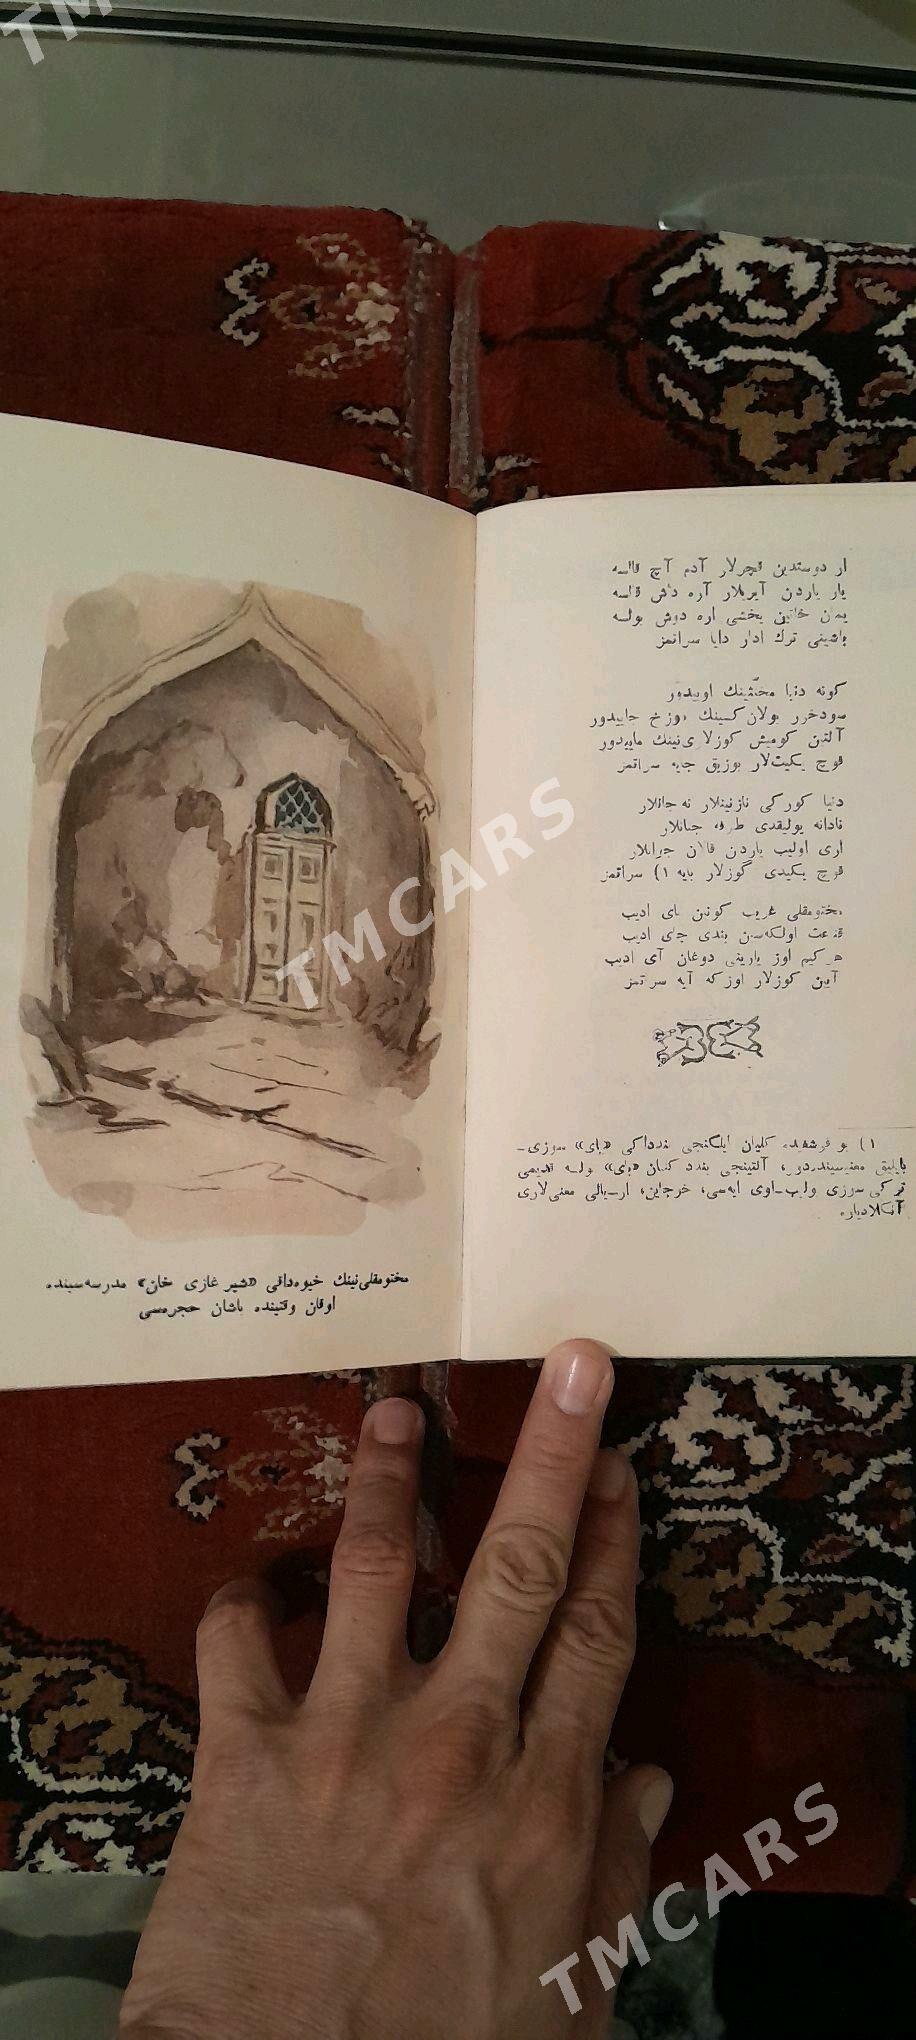 TMCARS
ار دوستدین قچرلار آدم آچ قالسه
یار یاردن آیریلار آره داش قالسه
یمان خاتین یخشی اره دوش بولسه
باشینی ترک ادار دایا سراتمز
کونه دنیا مخنثینک اوییدور
سودخرر بولان کسینک دوزخ جاییدور
آلتن کومیش کوزلاری‌نینک ماییدور
قوچ ییکیت‌لار بوزیق جیه سراتمز
دنیا کورکی نازنینلار نه جانلار
نادانه یولیقدی طرفه جبانلار
اری اولیب یاردن قالان جرانلار
قوچ ییکیدی گوزلار بایه ۱) سراتمز
مختومقلی غریب کونن بای ادیب
قنعت اولکه‌سن بندی جای ادیب
هرکیم اوز یارینی دوغان آی ادیب
آیین کوزلار اوزکه آیه سراتمز
۱) بو قرشغیده کلیان ایلکنجی بندداکی «بای» سوزی-
بایلیق معنیسینددور، آلتینجی بندد کلان «بای» بولسه قدیمی
ترکی سوزی ولیپ-اوی ایه‌سی، خرجاین، ار-یالی معنی‌لاری
آنکلادیاره
مختومقلی‌نینک خیوه‌داقی «شیر غازی خان» مدرسه‌سینده
اوقان وقتینده یاشان حجره‌سی
TMCARS
TMCARS